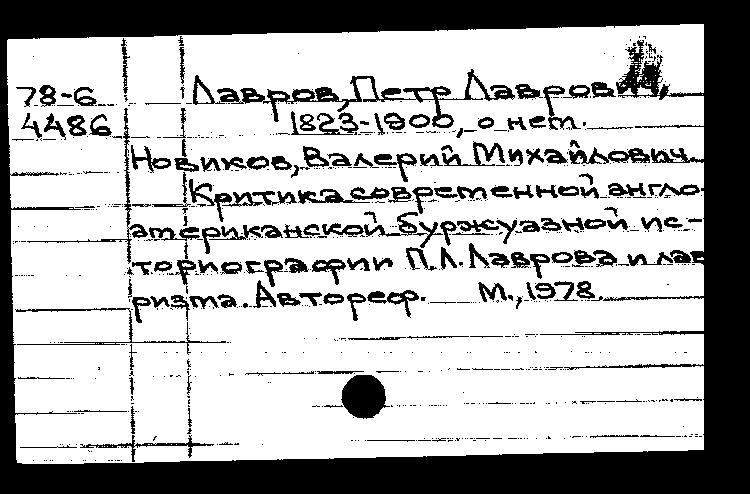 78-6 Лавров, Петр Лаврович,
4486 1823-1900, о нем.
Новиков, Валерий Михайлович.
Критика современной англо-
американской буржуазной ис-
ториографии П.Л. Лаврова и лав
ризма. Автореф. М., 1978.